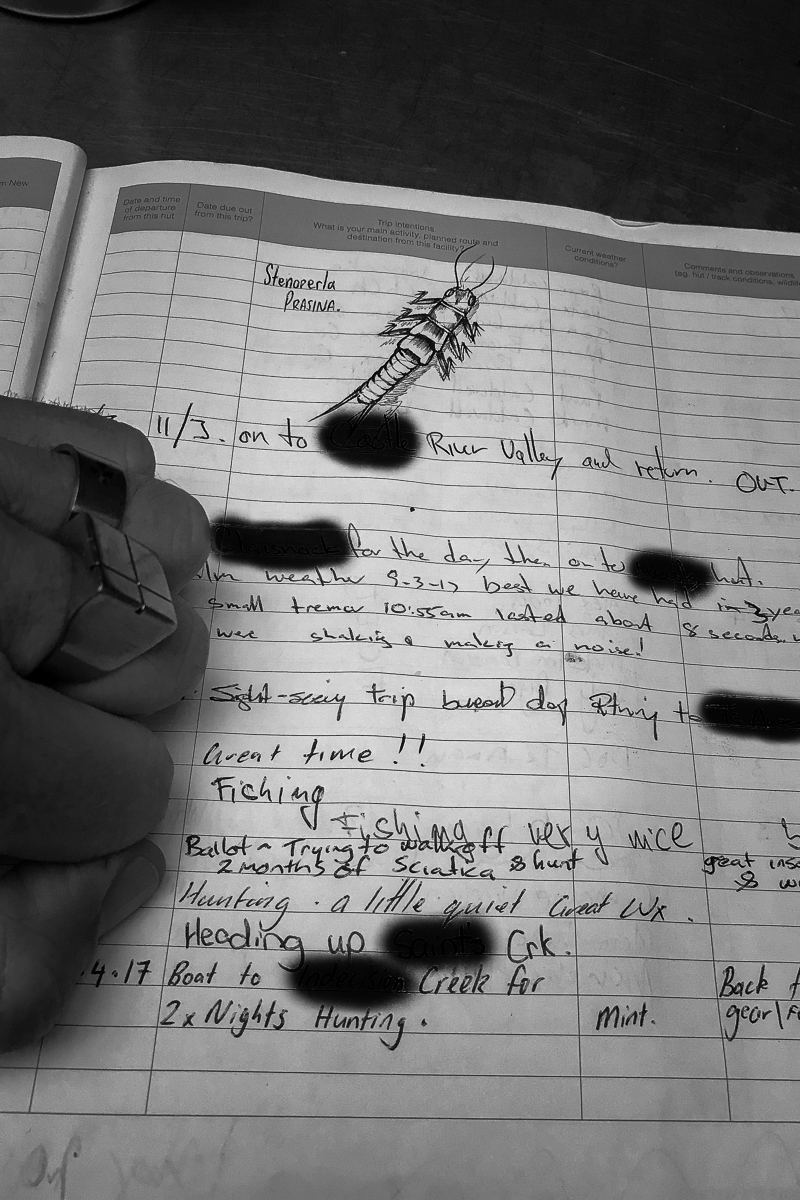 m New
Date and time of departure from this hut
Date due out from this trip?
Trip intentions
What is your main activity, planned route and destination from this facility?
Current weather conditions?
Comments and observations
(eg. hut / track conditions, wildli
Stenoperla
PRASINA.
11/3. on to River Valley and return. OUT.
for the day, then on to hut.
weather 9-3-17 best we have had in 3 yea
small tremor 10:55am lasted about 8 seconds.
were shaking & making a noise!
Sight-seeing trip day to
Great time !!
Fiching
Fishing off very nice
Ballot ~ Trying to walk off
2 months of Sciatica & hunt
great inse
& w
Hunting. a little quiet Great Wx.
Heading up Crk.
.4.17 Boat to Creek for
Back t
2x Nights Hunting.
Mint.
gear/Fo